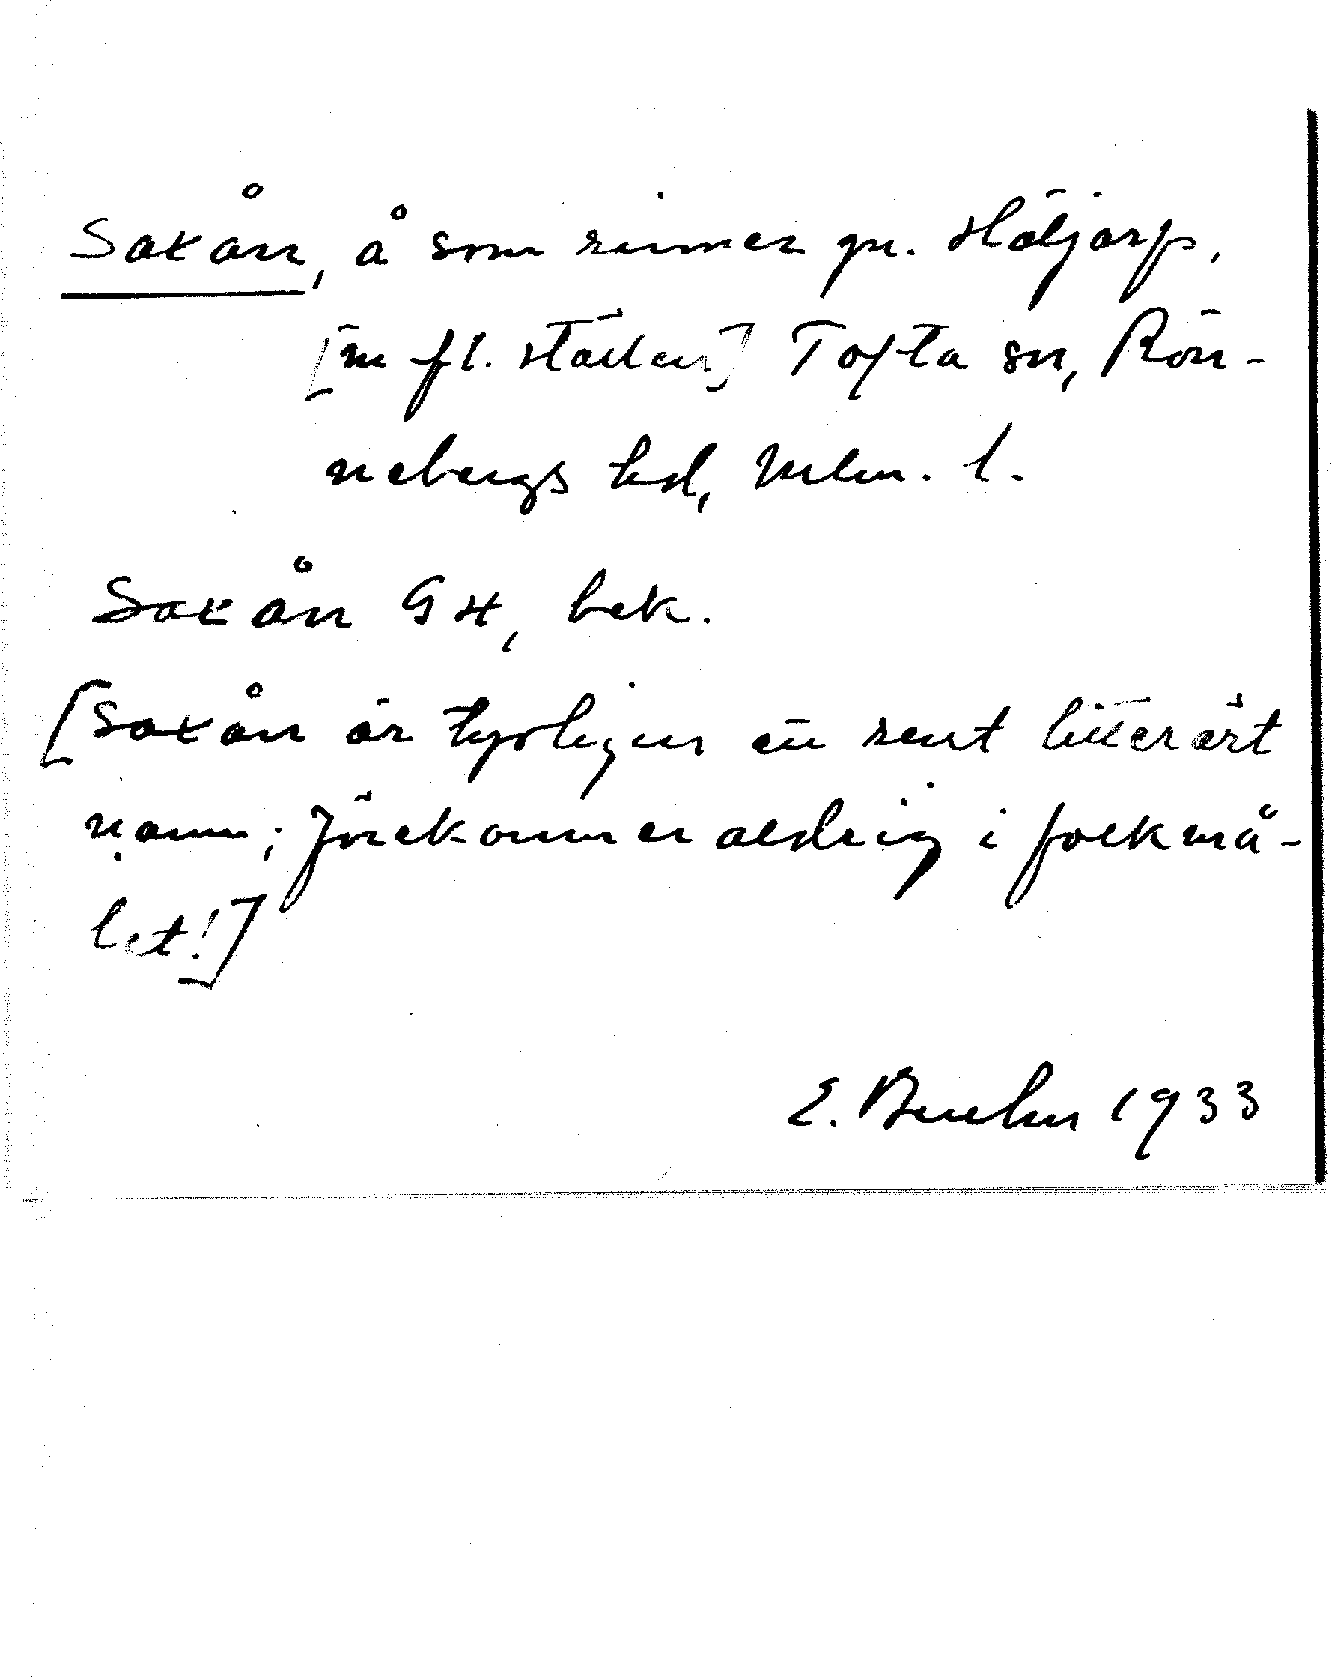 Saxån, å som rinner gm. Häljarp,
[m fl. ställen] Tofta sn, Rön-
nebergs hd, Mlm. l.
Saxån GH, bek.
[Saxån är tydligen ett rent litterärt
namn; förekommer aldrig i folkmå-
let!]
E. Bruhn 1933